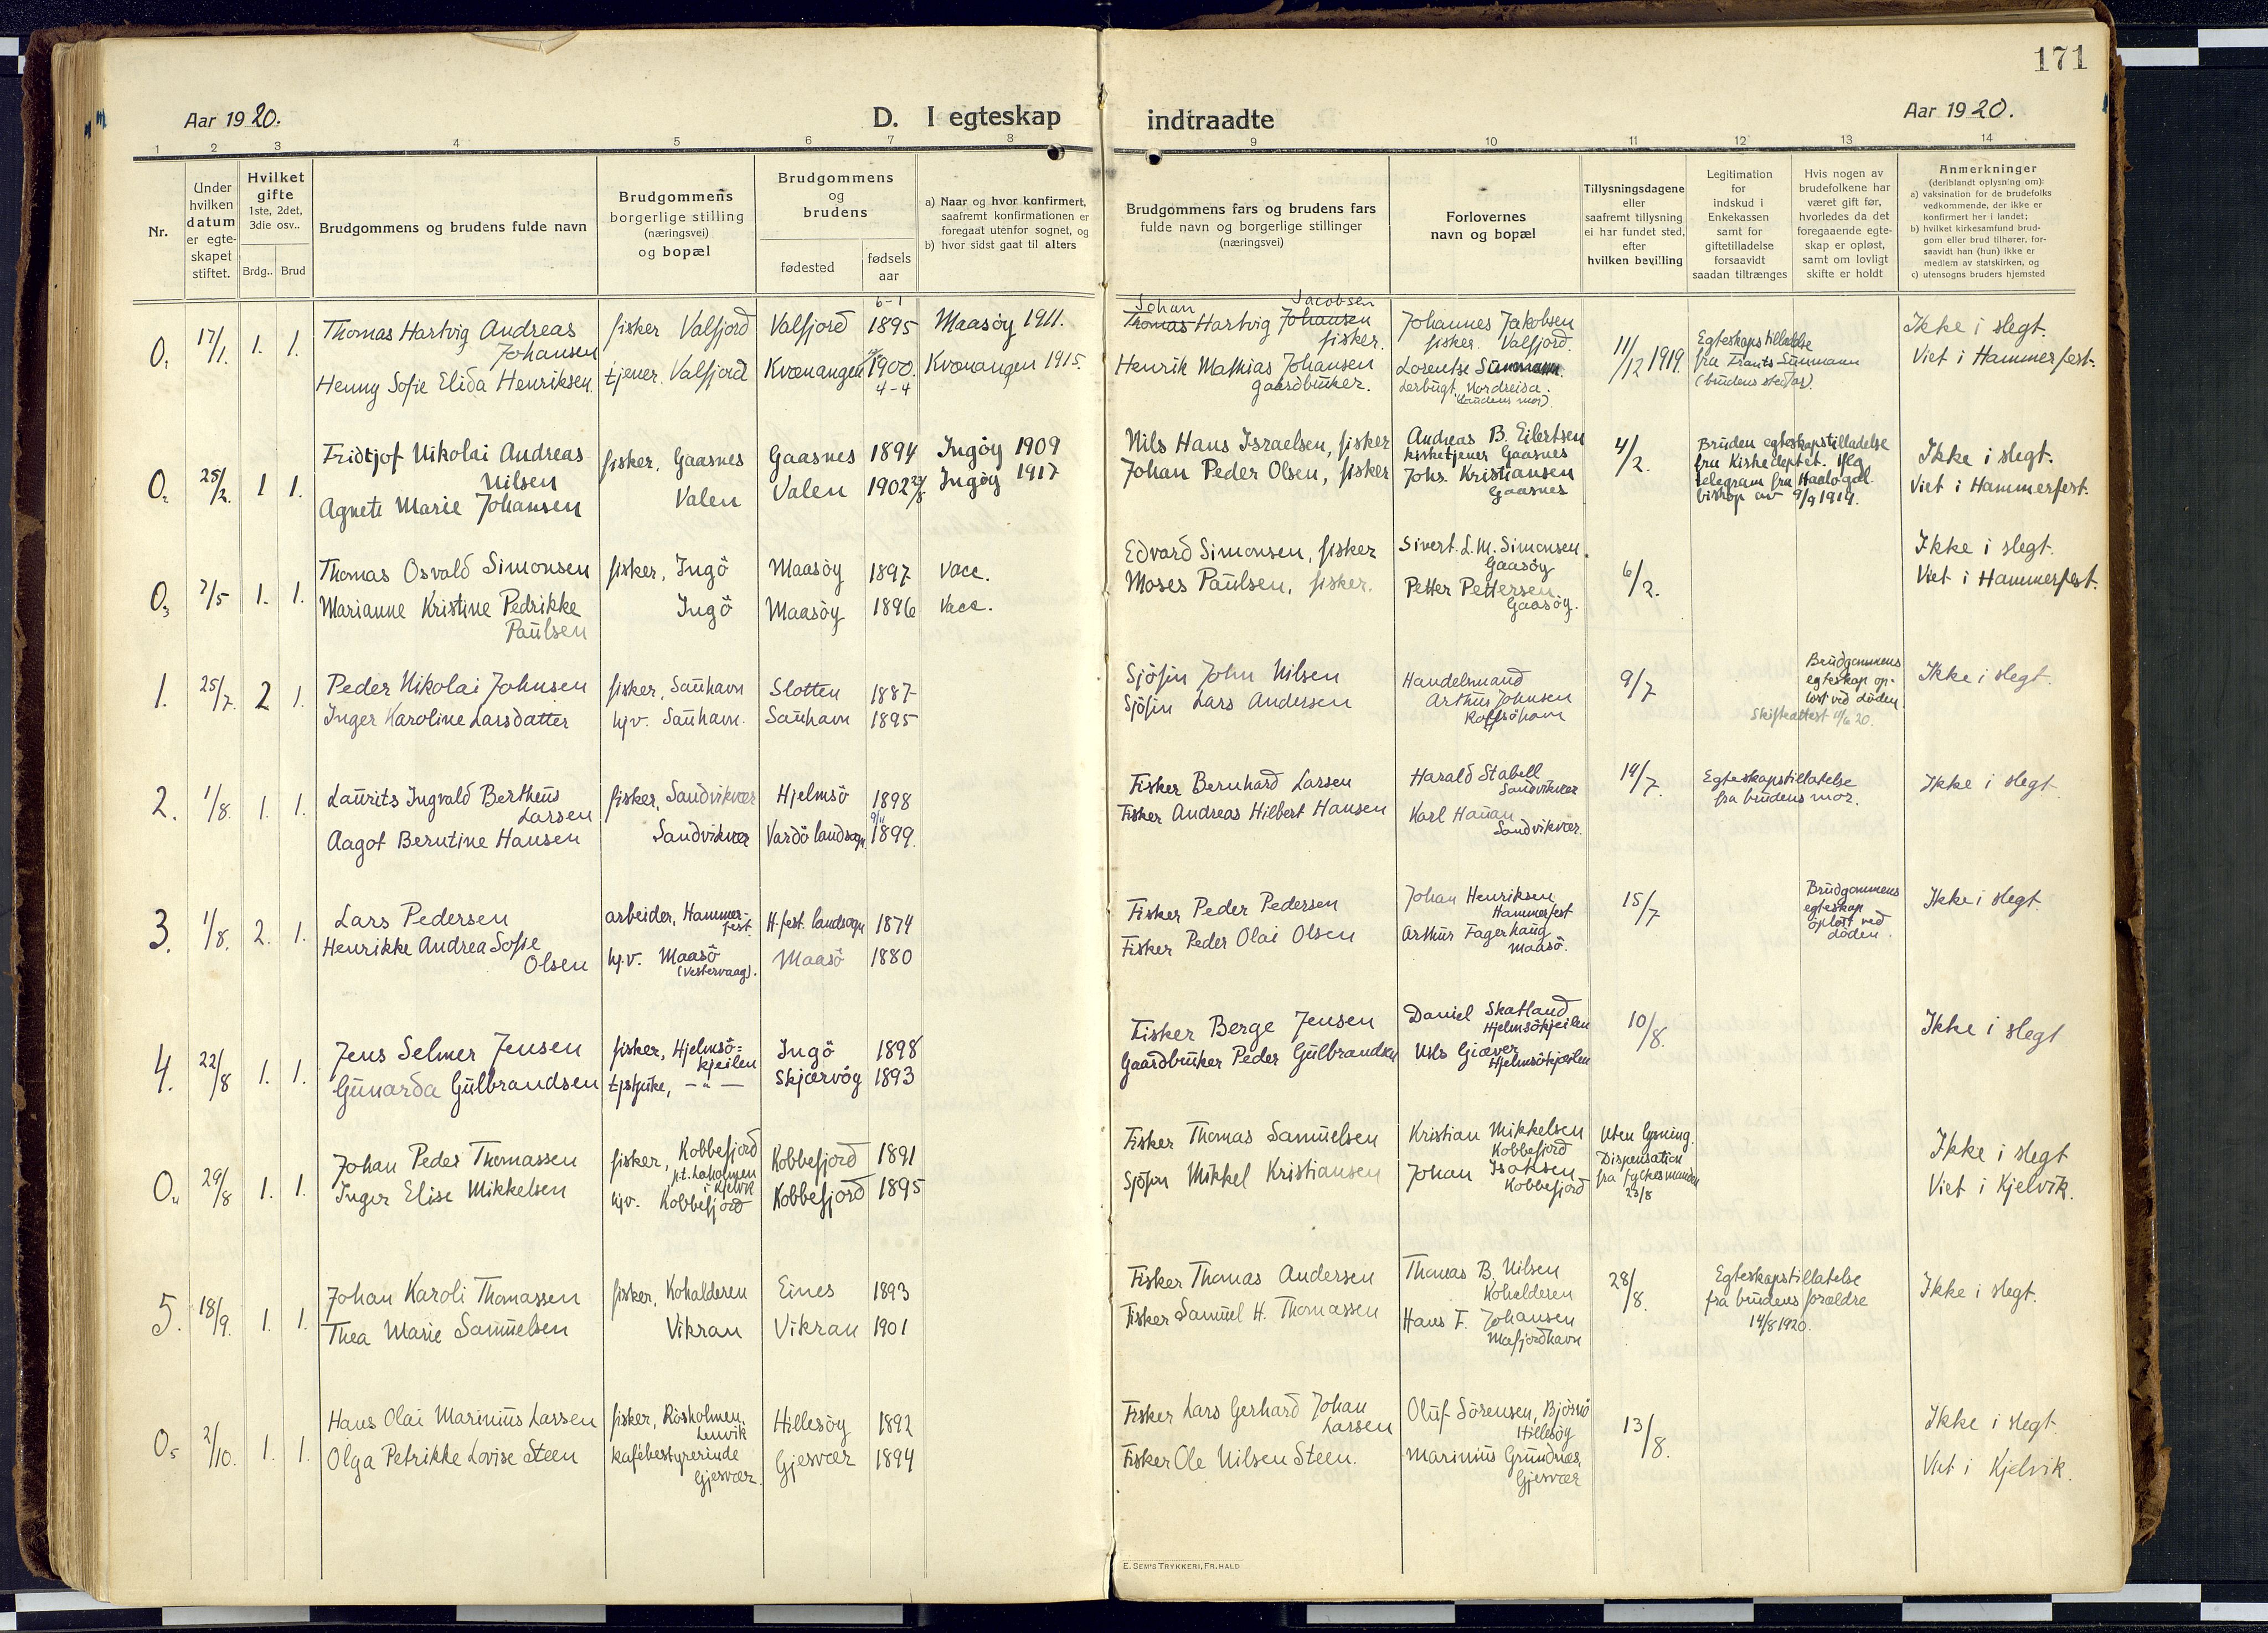 171
Aar 1920.
D. I egteskap indtraadte
Aar 1920.
1 2 3 4 5 6 7 8 9 10 11 12 13 14
Nr.
Under
hvilken
datum
er egte-
skapet
stiftet.
Hvilket
gifte
1ste, 2det,
3die osv..
Brdg.. Brud
Brudgommens og brudens fulde navn
Brudgommens
borgerlige stilling
(næringsvei)
og bopæl
Brudgommens
og
brudens
fødested
fødsels
aar
a) Naar og hvor konfirmert,
saafremt konfirmationen er
foregaat utenfor sognet, og
b) hvor sidst gaat til alters
Brudgommens fars og brudens fars
fulde navn og borgerlige stillinger
(næringsvei)
Forlovernes
navn og bopæl
Tillysningsdagene
eller
saafremt tillysning
ei har fundet sted,
efter
hvilken bevilling
Legitimation
for
indskud i
Enkekassen
samt for
giftetilladelse
forsaavidt
saadan tiltrænges
Hvis nogen av
brudefolkene har
været gift før,
hvorledes da det
foregaaende egte-
skap er opløst,
samt om lovligt
skifte er holdt
Anmerkninger
(deriblandt oplysning om):
a) vaksination for de brudefolks
vedkommende, der ikke er
konfirmert her i landet;
b) hvilket kirkesamfund brud-
gom eller brud tilhører, for-
saavidt han (hun) ikke er
medlem av statskirken, og
c) utensogns bruders hjemsted
0, 17/1. 1. 1.
Thomas Hartvig Andreas
Johansen
fisker Valfjord Valfjord 6-1 1895 Maasöy 1911.
Henny Sofie Elida Henriksen.
tjener. Valfjord Kvænangen 1900. 4-4 Kvænangen 1915.
Johan Jacobsen
Thomas Hartvig Johansen
fisker.
Henrik Mathias Johansen
gaardbruker.
Johannes Jakobsen
fisker. Valfjord
Lorentse Sünmann.
Lerbugt, Nordreisa.
(brudens mor).
11/12 1919.
Egteskapstilladelse
fra Frants Sünmann
(brudens stedfar).
Ikke i slegt.
Viet i Hammerfest.
0₂ 25/2. 1 1.
Fridtjof Nikolai Andreas
Nilsen
fisker, Gaasnes Gaasnes 1894 Ingöy 1909
Agnete Marie Johansen
Valen Valen 1902 Ingöy 1917
Nils Hans Israelsen, fisker
Johan Peder Olsen, fisker
Andreas B. Eilertsen
kirketjener Gaasnes
Johs. Kristiansen
Gaasnes
4/2.
Bruden egteskapstilladelse
fra Kirkedeptet. iflg
telegram fra Haalogal.
biskop av 9/9 1919.
Ikke i slegt.
Viet i Hammerfest.
0₃ 2/5 1. 1.
Thomas Osvald Simonsen fisker, Ingö Maasöy 1897 vacc.
Marianne Kristine Pedrikke
Paulsen
Ingö Maasöy 1896 vacc.
Edvard Simonsen, fisker
Moses Paulsen, fisker.
Sivert. L.M. Simonsen.
Gaasöy
Petter Pettersen
Gaasöy.
6/2.
Ikke i slegt.
Viet i Hammerfest.
1. 25/7. 2 1.
Peder Nikolai Johnsen fisker, Sauhavn Slotten 1887
Inger Karoline Larsdatter hjv. Sauhavn. Sauhavn 1895
Sjöfin John Nilsen
Sjöfin Lars Andersen
Handelsmand
Arthur Johnsen
Rolfsöhavn
9/7
Brudgommens
egteskap op-
löst ved döden.
Skifteattest 11/6 20.
Ikke i slegt.
2. 1/8. 1. 1.
Laurits Ingvald Bertheus
Larsen
fisker, Sandvikvær Hjelmsö 1898
Aagot Berntine Hansen
Sandvikvær Vardö landsogn 9/11 1899.
Fisker Bernhard Larsen
Fisker Andreas Hilbert Hansen
Harald Stabell
Sandvikvær
Karl Hauan
Sandvikvær.
14/7.
Egteskapstillatelse
fra brudens mor.
Ikke i slegt
3. 1/8. 2. 1.
Lars Pedersen
arbeider, Hammer-
fest.
H.fest. landsogn 1874
Henrikke Andrea Sofie
Olsen
hj.v. Maasö
(Vestervaag).
Maasö 1880
Fisker Peder Pedersen
Fisker Peder Olai Olsen
Johan Henriksen
Hammerfest
Arthur Fagerhaug
Maasö.
15/7
Brudgommens
egteskap
oplöst ved
döden.
Ikke i slegt.
4. 22/8 1. 1.
Jens Selmer Jensen
fisker, Hjelmsö=
kjeilen
Ingö 1898
Gunarda Gulbrandsen tjstpike, — " — Skjærvöy 1893
Fisker Berge Jensen
Gaardbruker Peder Gulbrandsen
Daniel Skatland
Hjelmsökjeilen
Nils Giæver
Hjelmsökjeilen
10/8.
Ikke i slegt
0₄ 29/8 1. 1.
Johan Peder Thomassen
fisker, Kobbefjord
p.t. Laholmen
i Kjelvik
Kobbefjord 1891
Inger Elise Mikkelsen
hjv. Kobbefjord Kobbefjord 1895
Fisker Thomas Samuelsen
Sjöfin Mikkel Kristiansen
Kristian Mikkelsen
Kobbefjord
Johan Isaksen
Kobbefjord
Uten lysning.
Dispensation
fra fylkesmanden
23/8
Ikke i slegt
Viet i Kjelvik.
5. 18/9. 1. 1.
Johan Karoli Thomassen fisker, Kohalderen Eines 1893
Thea Marie Samuelsen Vikran Vikran 1901
Fisker Thomas Andersen
Fisker Samuel H. Thomassen
Thomas B. Nilsen
Kohalderen
Hans F. Johansen
Mafjordhavn
28/8.
Egteskapstillatelse
fra brudens forældre
14/8 1920.
Ikke i slegt.
0₅ 2/10. 1. 1.
Hans Olai Marinius Larsen
fisker, Rosholmen.
Lenvik
Hillesöy 1892
Olga Petrikke Lovise Steen
kafébestyrerinde
Gjesvær.
Gjesvær 1894
Fisker Lars Gerhard Johan
Larsen
Fisker Ole Nilsen Steen.
Oluf Sörensen, Björnö
Hillesöy
Marinius Grundnæs,
Gjesvær
13/8.
Ikke i slegt
Viet i Kjelvik.
E. SEM'S TRYKKERI, FR.HALD